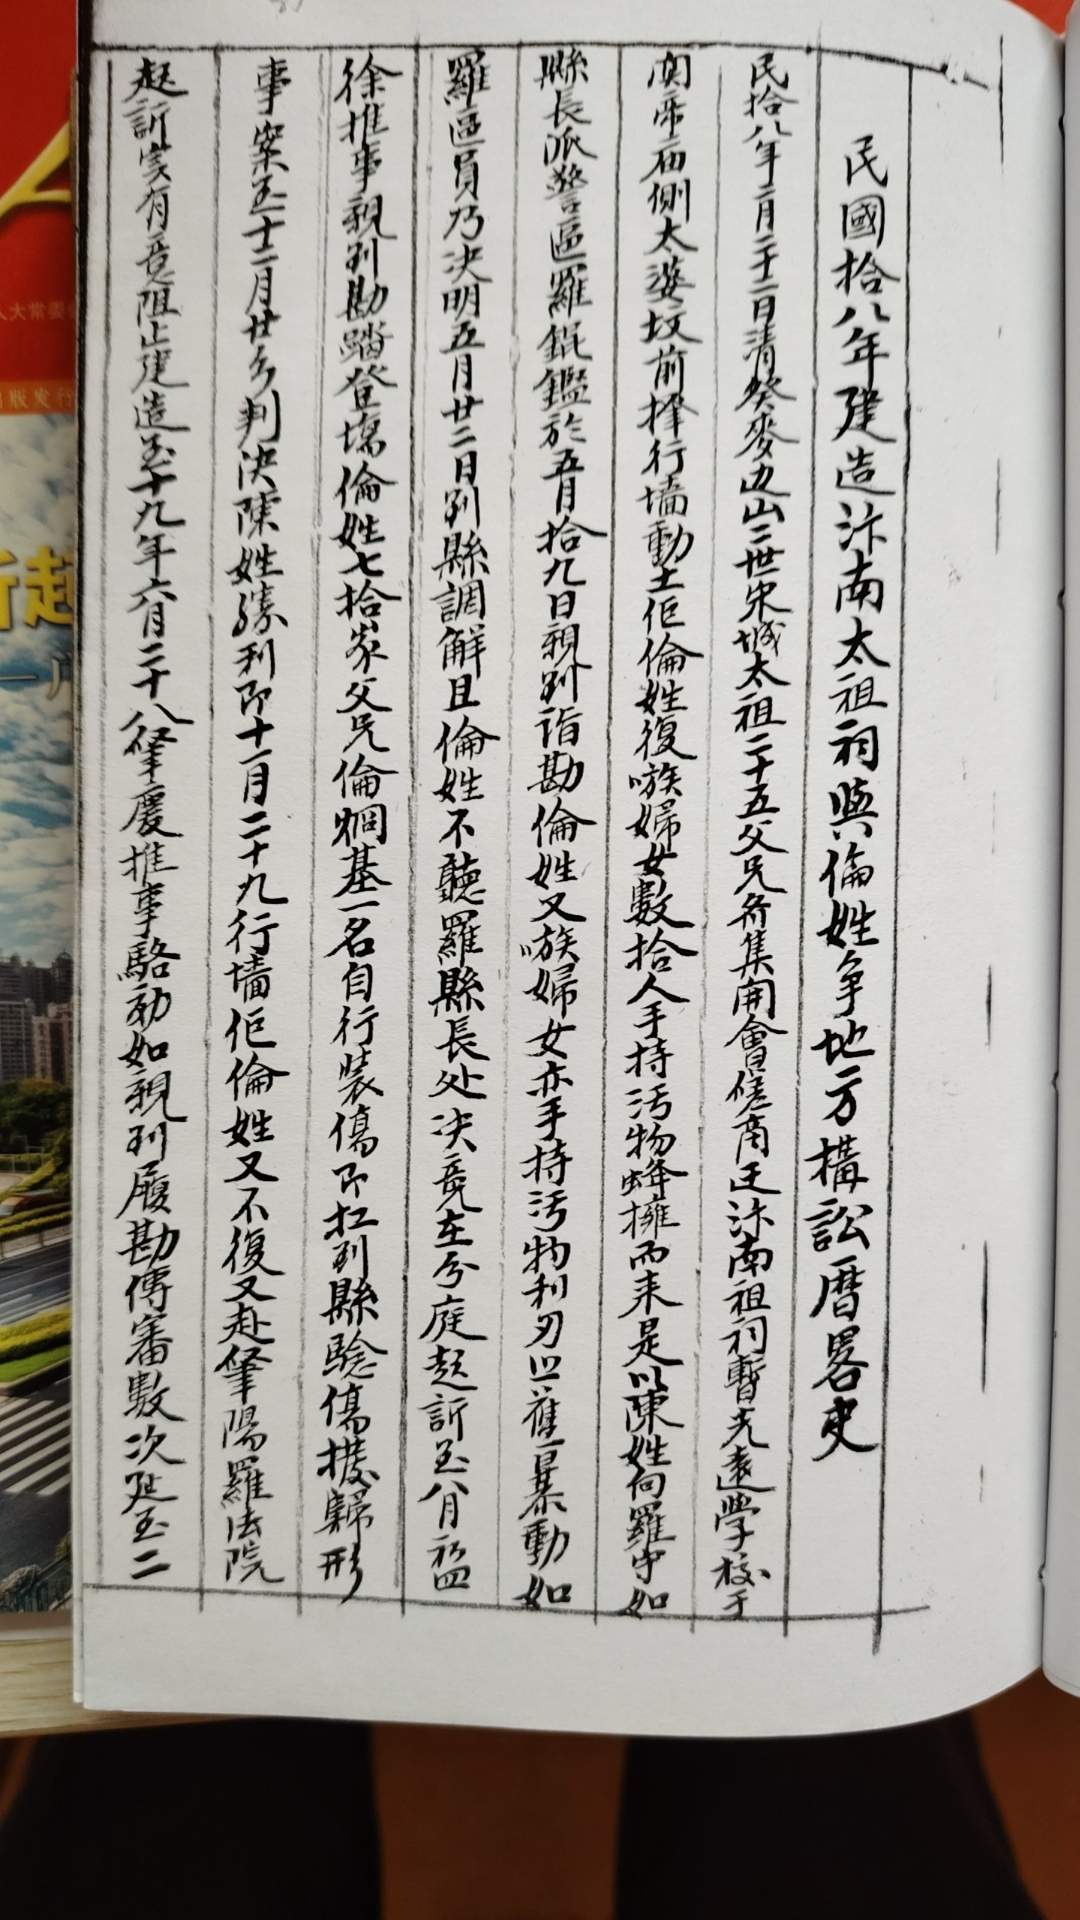 民國拾八年建造汴南太祖祠與倫姓爭地方構訟曆畧史
民拾八年二月二十二日清癸麥边山二世宋城太祖二十五父兄齐集開會磋商廷汴南祖祠暫充遠學校于
関帝庙側太婆坟前擇行墻動土佢倫姓復嗾婦女數拾人手持汚物蜂擁而来是以陳姓向羅守如
縣長派警區羅錕鑑於五月拾九日親到詣勘倫姓又嗾婦女亦手持汚物利刃照舊暴動如
羅區員乃決明五月廿二日到縣調解且倫姓不聽羅縣長处决竟在分庭起訴至八月初四
徐推事親到勘踏登塲倫姓七拾家父兄倫炯基一名自行裝傷即扛到縣驗傷擬歸形
事案至十二月廿判決陳姓勝利即十一月二十九行墻佢倫姓又不復又赴肇陽羅法院
起訴実有意阻止建造至十九年六月二十八肇慶推事駱劾如親到履勘傳審數次延至二
人大常委
出版发行